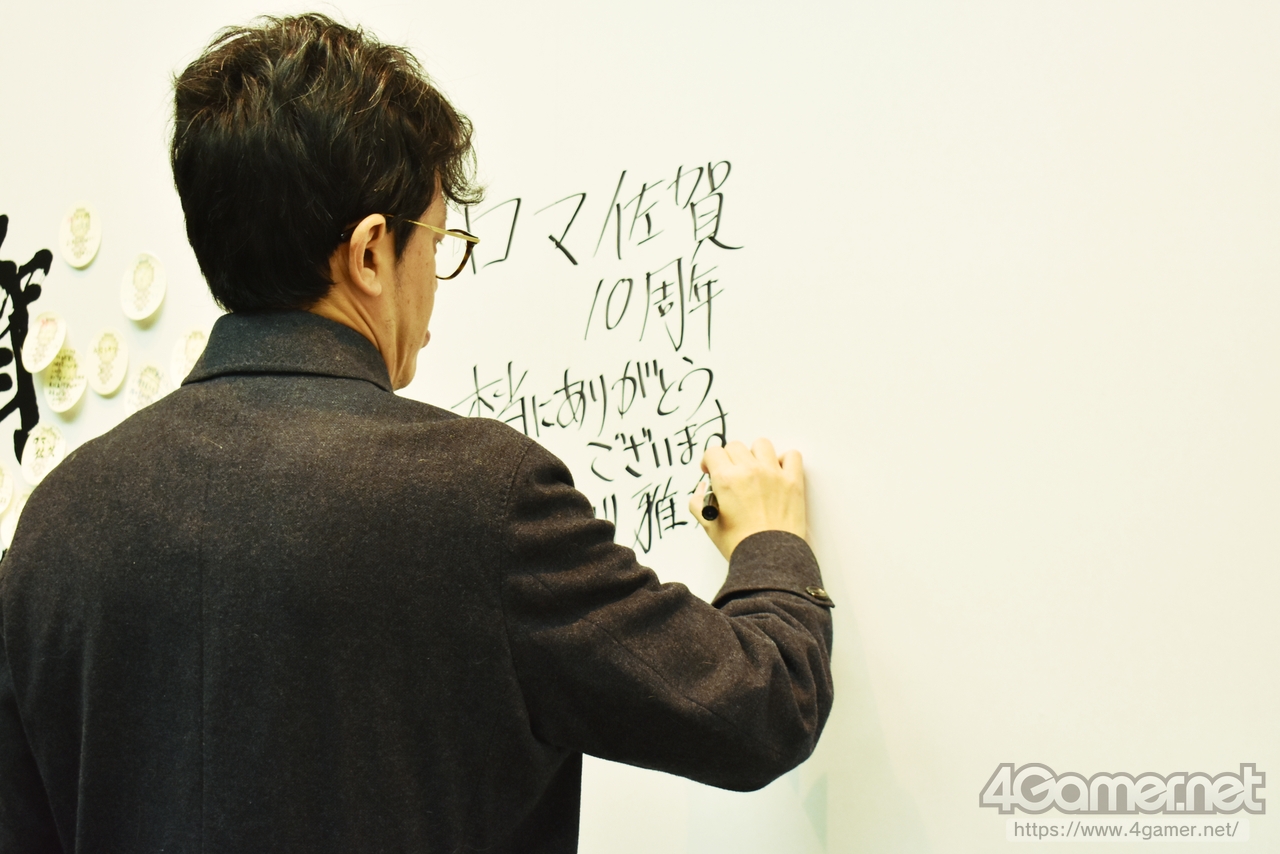 ロマ佐賀
10周年
本当にありがとう
ございます
雅
4Gamer.net
https://www.4gamer.net/